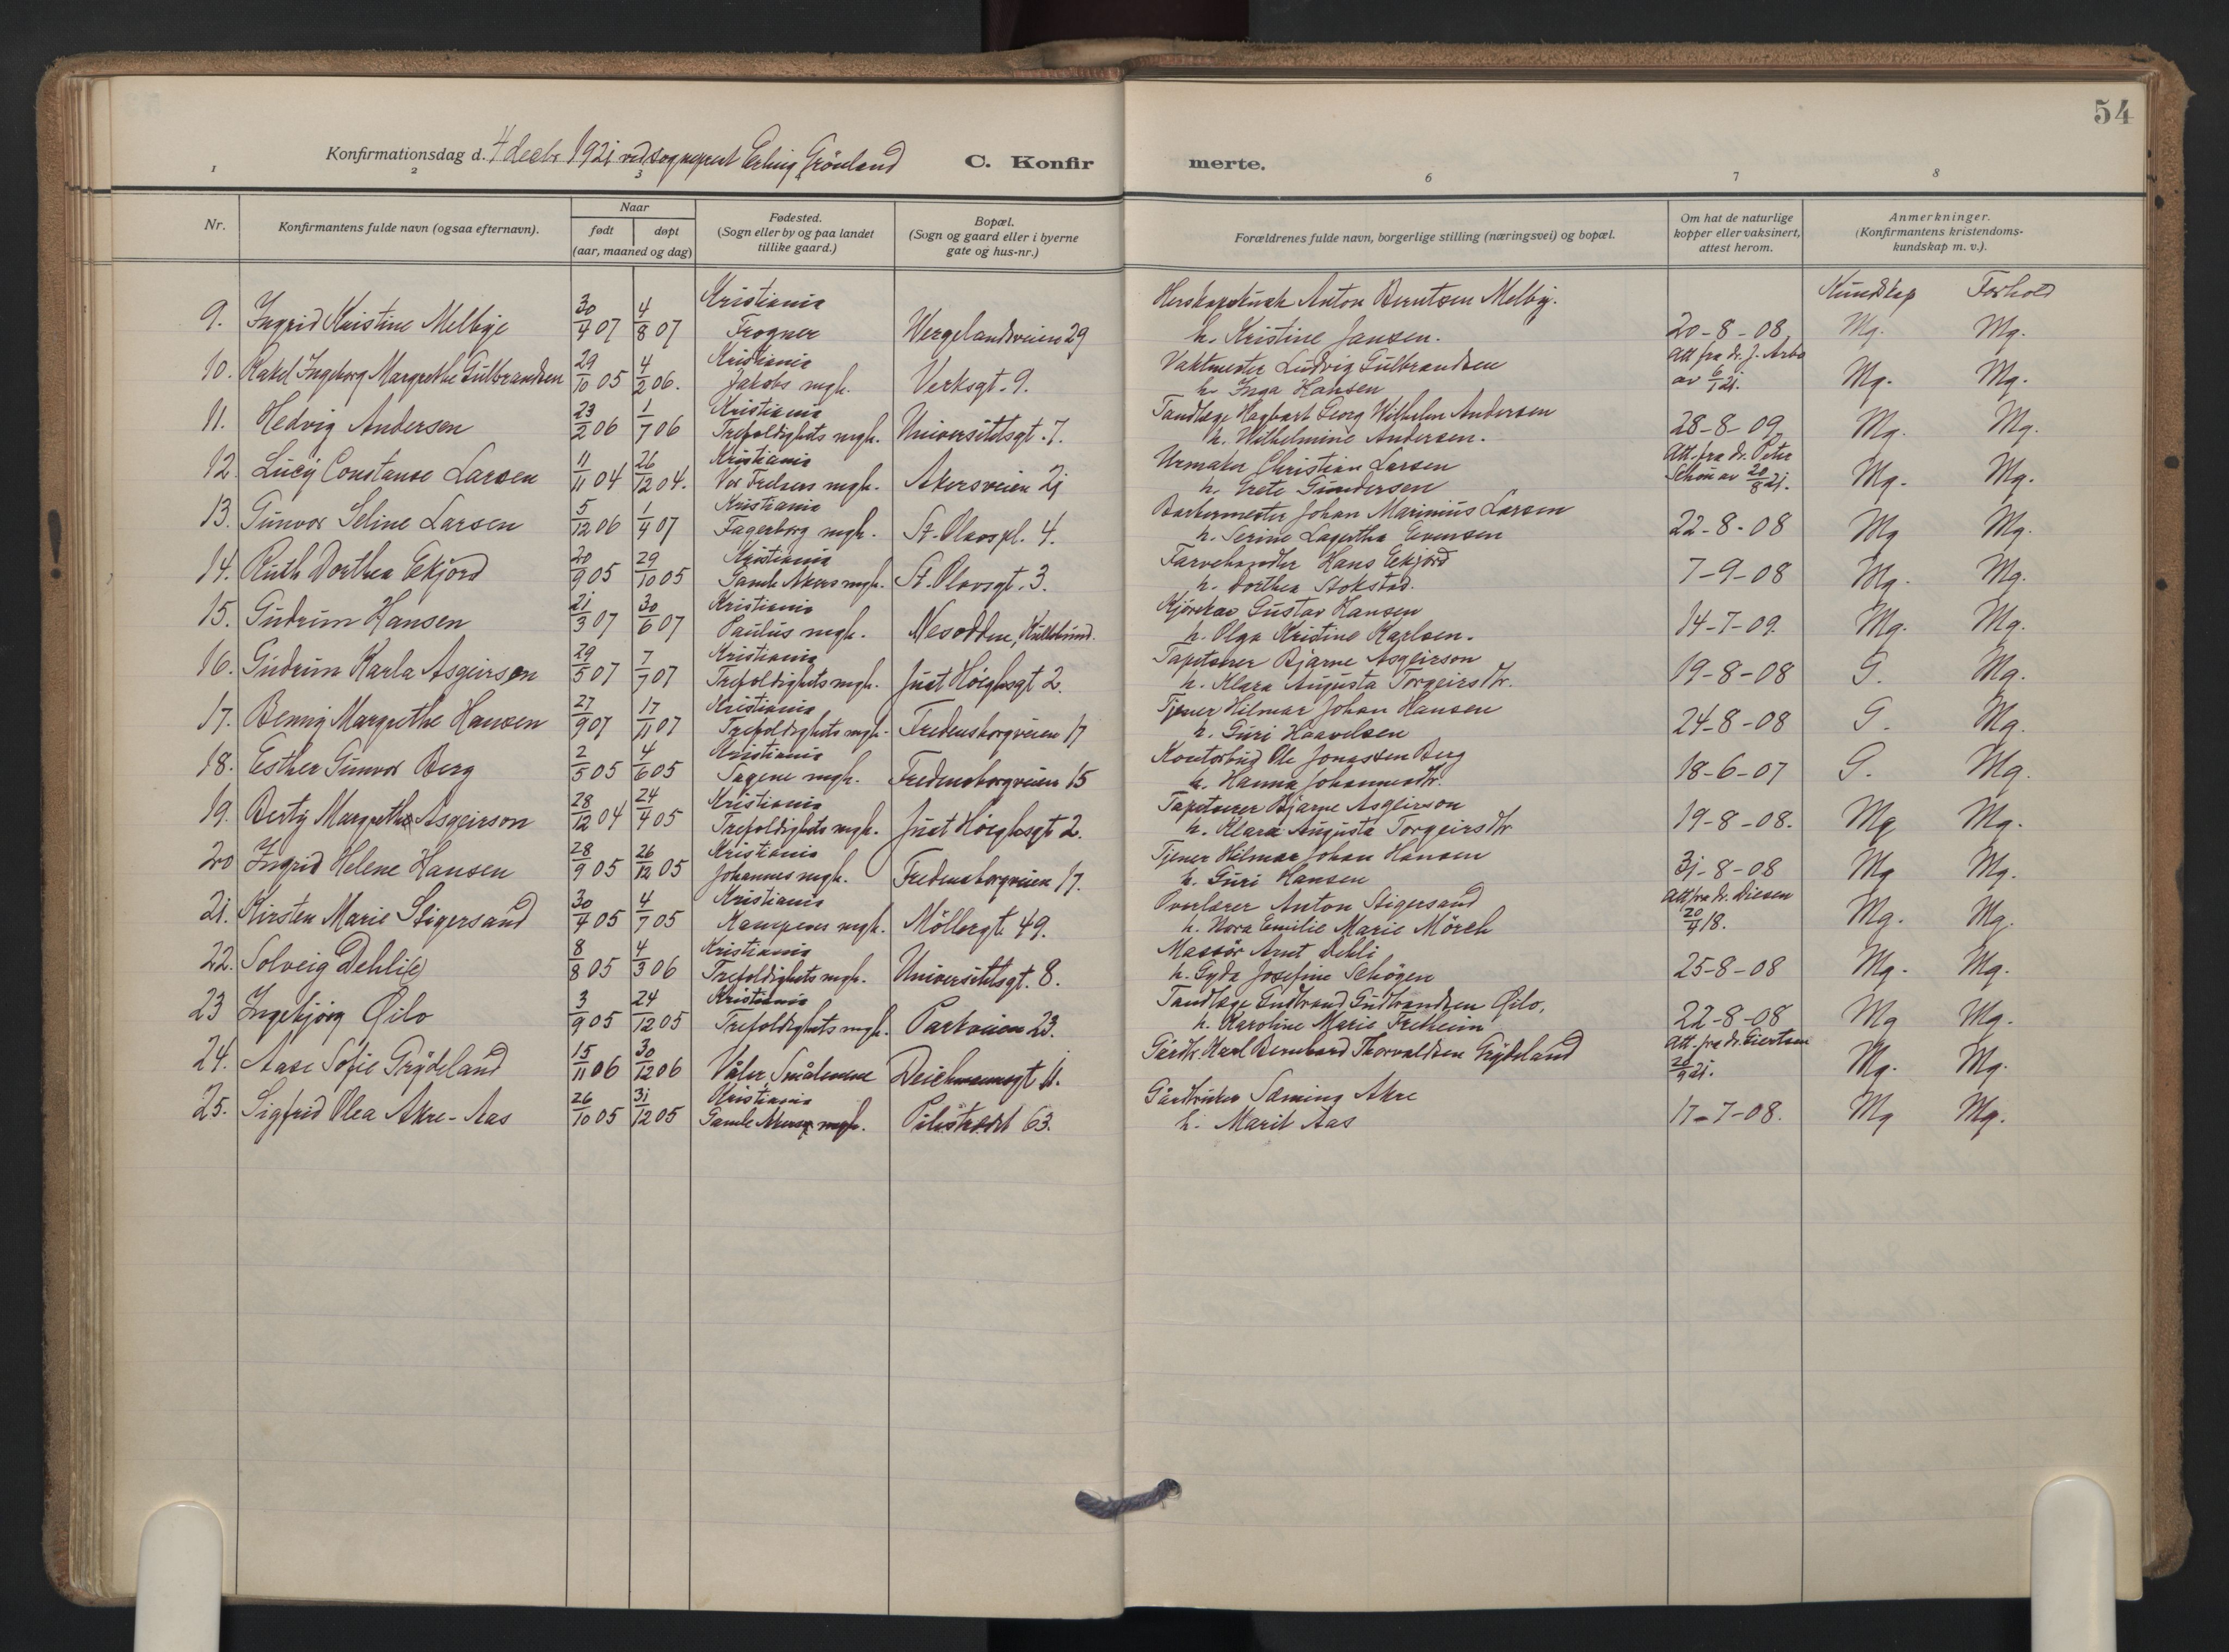 54
Konfirmationsdag d. 4 decbr 1921 ved sogneprest Erling Grönland C. Konfirmerte.
1 2 3 4 6 7 8
Nr. Konfirmantens fulde navn (ogsaa efternavn). Naar født døpt (aar, maaned og dag) Fødested. (Sogn eller by og paa landet tillike gaard.) Bopæl. (Sogn og gaard eller i byerne gate og hus-nr.) Forældrenes fulde navn, borgerlige stilling (næringsvei) og bopæl. Om hat de naturlige kopper eller vaksinert, attest herom. Anmerkninger. (Konfirmantens kristendoms-kundskap m. v.).
Kundskap Forhold
9. Ingrid Kristine Melbye 30/7 07 4/8 07 Kristiania Frogner Wergelandsveien 29 Herskapskusk Anton Berntsen Melby. h. Kristine Jansen. 20-8-08. Mg. Mg.
10. Rakel Ingeborg Margrethe Gulbrandsen 29/10 05 4/2 06. Kristiania Jakobs mgh. Verksgt. 9. Vaktmester Ludvig Gulbrandsen h. Inga Hansen Att fra dr. J. Arbo av 6/1 21. Mg. Mg.
11. Hedvig Andersen 23/2 06 1/7 06 Kristiania Trefoldighets mgh. Universitetsgt. 7. Tandlæge Hagbart Georg Wilhelm Andersen h. Wilhelmine Andersen. 28-8-09. Mg. Mg.
12. Lucy Constanse Larsen 11/11 04 26/12 04. Kristiania Vor Frelsers mgh. Akersveien 21 Urmaker Christian Larsen h. Grete Gundersen Att. fra dr. Peter Schou av 20/8 21. Mg. Mg.
13. Gunvor Seline Larsen 5/12 06 1/4 07 Kristiania Fagerborg mgh. St. Olavspl. 4. Barbermester Johan Marinius Larsen h. Serine Lagertha Evensen 22-8-08 Mg Mg.
14. Ruth Dorthea Ekjord 20/9 05 29/10 05 Kristiania Gamle Akers mgh. St. Olavsgt. 3. Farvehandler Hans Ekjord h. Dorthea Stokstad. 7-9-08 Mg. Mg.
15. Gudrun Hansen 21/3 07 30/6 07 Kristiania Paulus mgh. Nesodden, Hellebund. Kjörekar Gustav Hansen h. Olga Kristine Karlsen. 14-7-09. Mg. Mg.
16. Gudrun Karla Asgeirson 29/5 07 7/7 07 Kristiania Trefoldighets mgh. Just Höeghsgt 2. Tapetserer Bjarne Asgeirson h. Klara Augusta Torgeirsdtr. 19-8-08 G. Mg.
17. Benny Margrethe Hansen 27/9 07 17/11 07 Kristiania Trefoldighets mgh. Fredensborgveien 17 Tjener Hilmar Johan Hansen h. Guri Haavelsen 24-8-08 G. Mg.
18. Esther Gunvor Berg 2/5 05 4/6 05 Kristiania Sagene mgh. Fredensborgveien 15 Kontorbud Ole Jonassen Berg h. Hanna Johannesdtr. 18-6-07 G. Mg.
19. Berty Margrethe Asgeirson 28/12 04 24/4 05 Kristiania Trefoldighets mgh. Just Höeghsgt 2. Tapetserer Bjarne Asgeirson h. Klara Augusta Torgeirsdtr 19-8-08. Mg Mg.
20 Ingrid Helene Hansen 28/9 05 26/12 05 Kristiania Johannes mgh. Fredensborgveien 17. Tjener Hilmar Johan Hansen h. Guri Hansen 31-8-08 Mg Mg.
21. Kirsten Marie Stigersand 30/4 05 4/7 05 Kristiania Kampens mgh. Möllergt. 49. Overlærer Anton Stigersand h. Nora Emilie Marie Mörch Att fra dr. Diesen 20/4 18. Mg. Mg.
22. Solveig Dehli(e) 8/8 05 4/3 06 Kristiania Trefoldighets mgh. Universitetsgt. 8. Massör Arnt Dehli h. Gyda Josefine Schögen 25-8-08 Mg. Mg.
23 Ingebjörg Öilo 3/9 05 24/12 05 Kristiania Trefoldighets mgh. Parkveien 23. Tandlæge Gudbrand Gudbrandsen Öilo, h. Karoline Marie Fretheim 22-8-08 Mg Mg.
24. Aase Sofie Grydeland 15/11 06 30/12 06 Våler, Smålenene Deichmansgt 11. Gårdbr. Karl Bernhard Thorvaldsen Grydeland Att. fra dr. Giertsen 20/9 21. Mg. Mg.
25. Sigfrid Olea Akre-Aas 26/10 05 31/12 05 Kristiania Gamle Akers mgh. Pilestrædt 63. Gårdbruker Sæming Akre h. Marit Aas 17-7-08. Mg Mg.